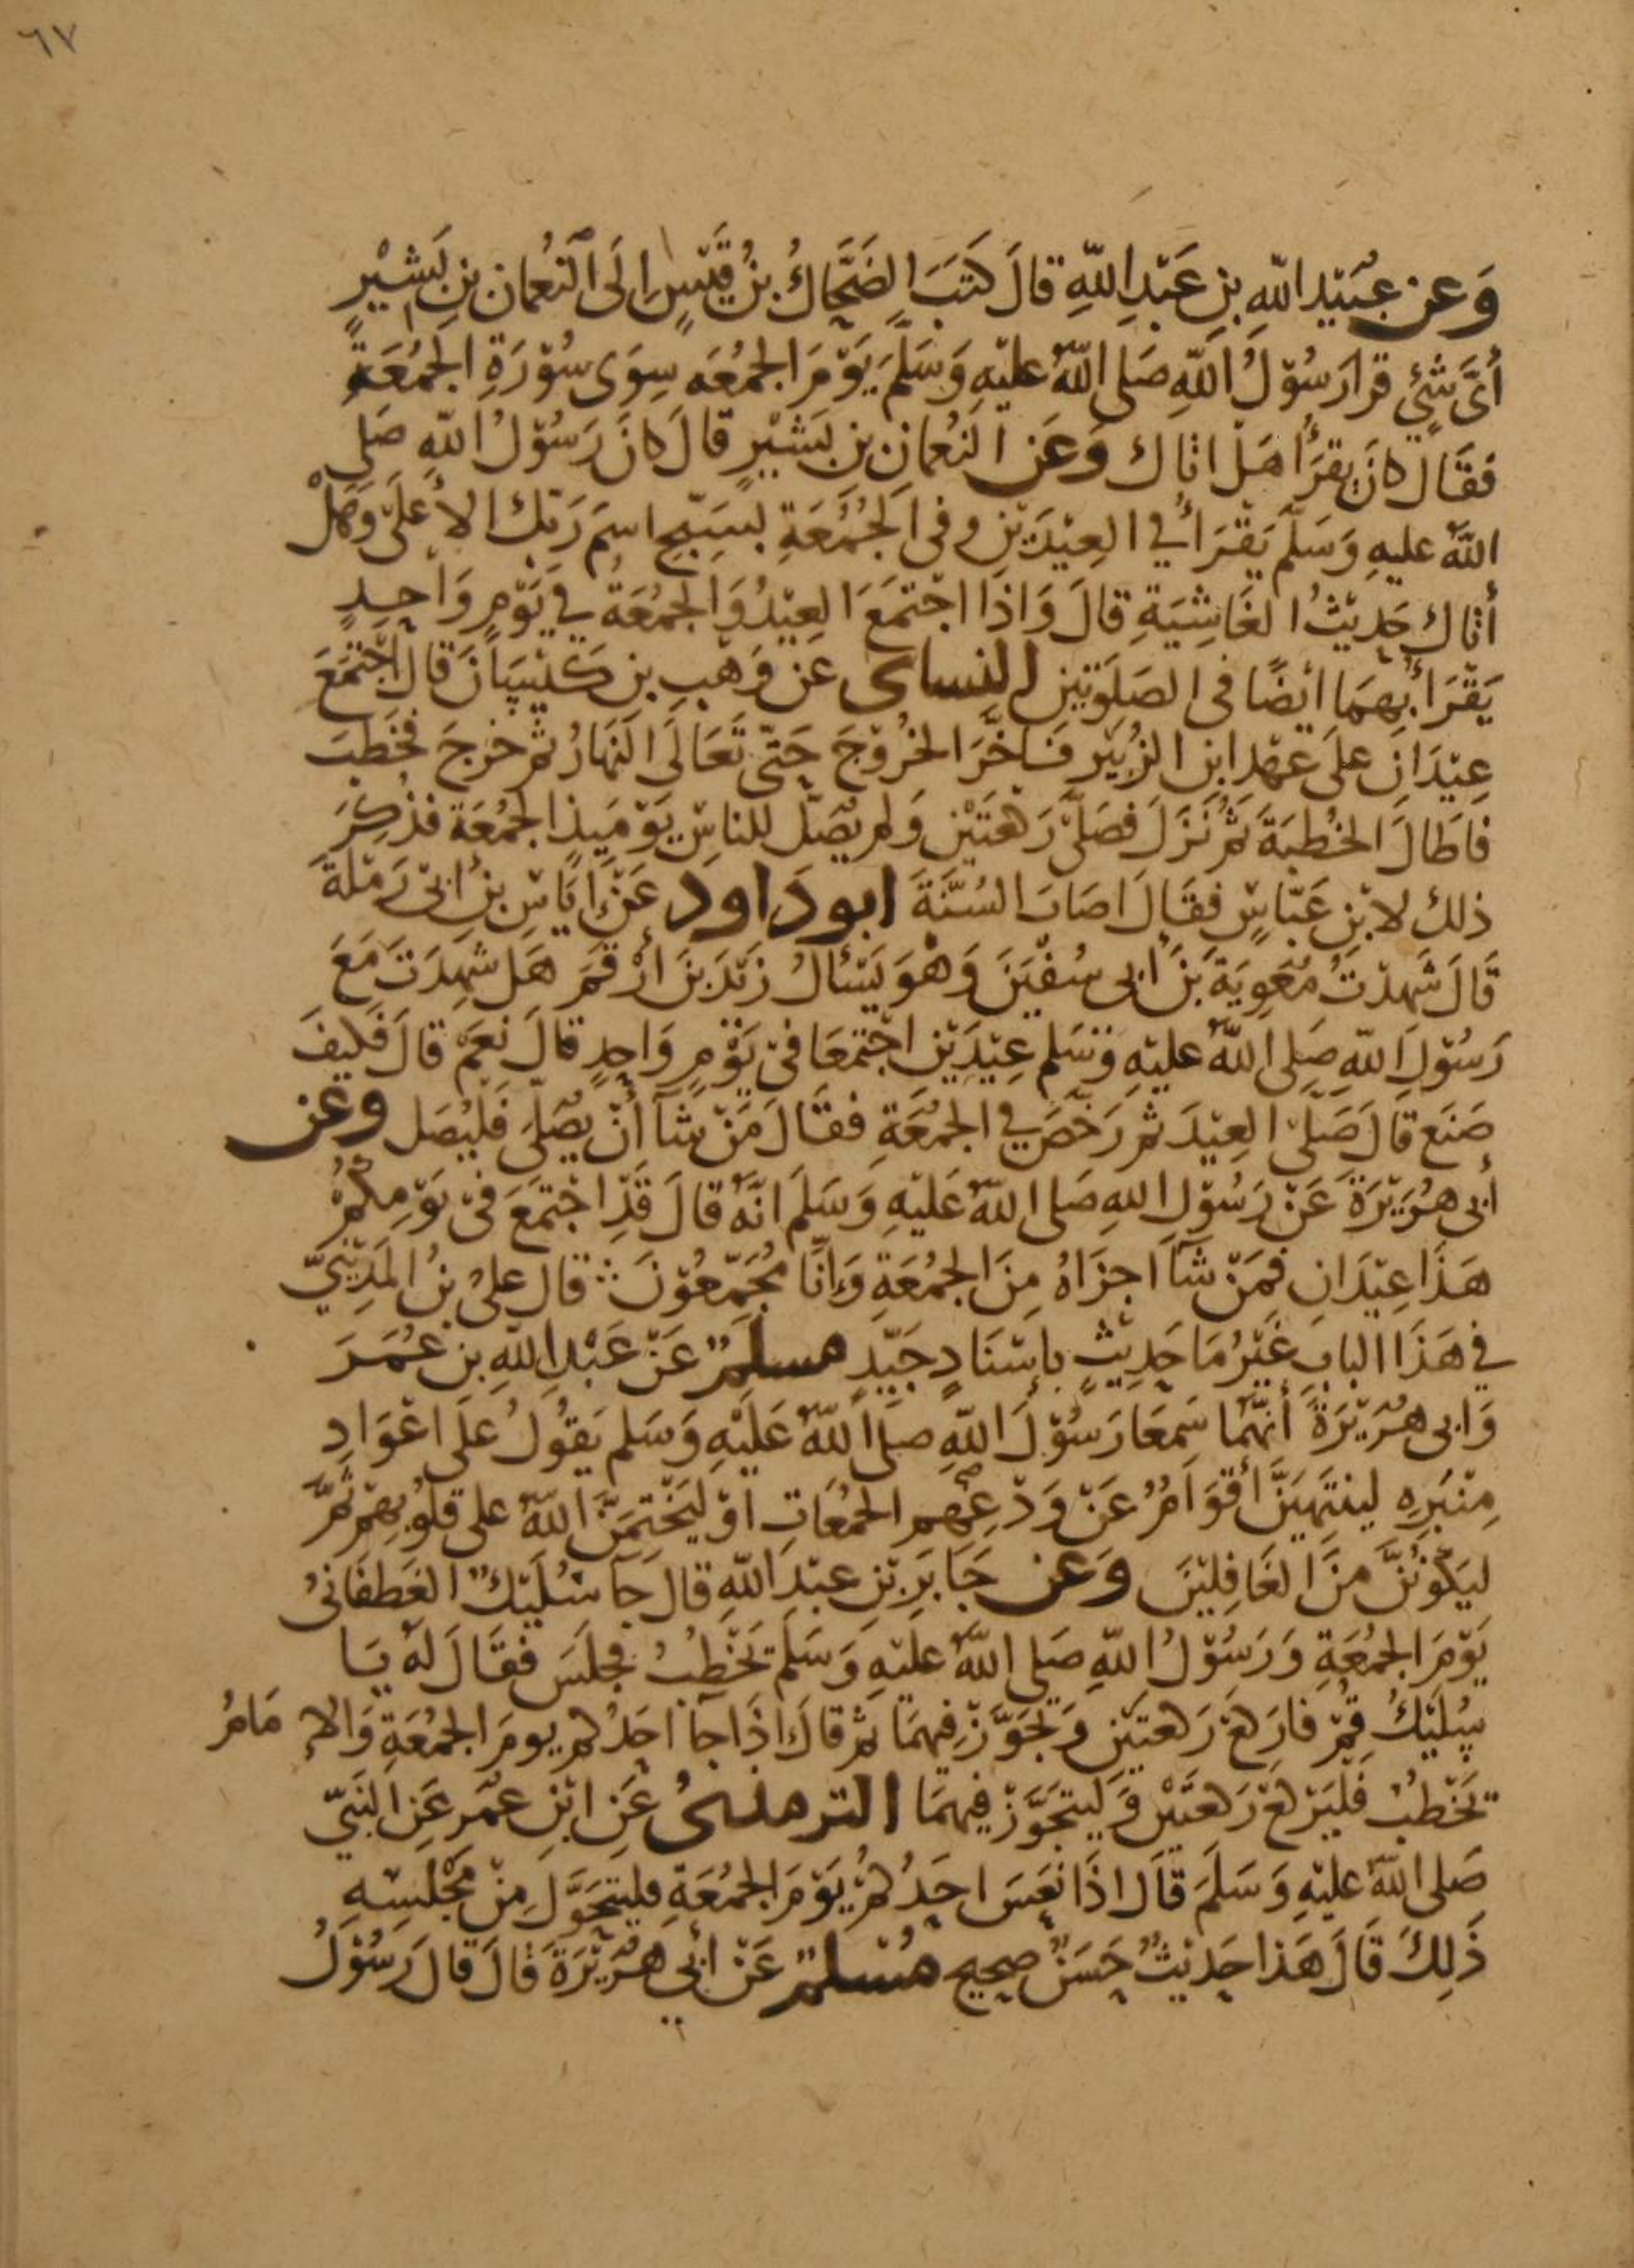 ٦٧
وَعن عُبَيْدِ اللهِ بنِ عَبْدِ اللهِ قالَ كَتَبَ الضَحَّاكُ بنُ قَيْسٍ اِلَى النُعْمانِ بنِ بَشِيْرٍ
أىَّ شَئٍ قرا رَسُوْلُ اللهِ صَلى اللهُ عليْهِ وَسَلَّمَ يَوْمَ الجُمُعَه سِوَى سُوْرَةِ الجُمُعَةِ
فَقَالَ كانَ يقرَأ هَلْ اتاك وَعَن النُعْمانِ بنِ بَشيْرٍ قالَ كانَ رَسُوْلُ اللهِ صَلى
اللهُ عليهِ وَسَلَّمَ يَقْرَأُ في العِيْدَيْنِ وفى الجُمُعَةِ بسَبِّحِ اسمَ رَبِّك الأعلَى وَهَلْ
أتاك حَدِيْثُ الغَاشِيَةِ قالَ وَاذا اجْتمَعَ العِيْدُ وَالجُمُعَةُ في يَوْمٍ وَاحِدٍ
يَقْرَأُ بِهِمَا ايْضًا فى الصَلوَتيْنِ النساى عَن وَهْبِ بنِ كَيْسَانَ قالَ اجْتمَعَ
عِيْدَانِ علَى عَهْدِ ابنِ الزُبَيْرِ فَاَخَّرَ الخُرُوْجَ حَتّى تَعَالَى النَهَارُ ثمَّ خرَجَ فخَطبَ
فاطَالَ الخُطبَةَ ثمَّ نَزَلَ فصَلَّى رَكعَتَيْنِ وَلم يُصَلِّ للناسِ يَوْمَيِذٍ الجُمُعَة فذُكِرَ
ذلك لابْنِ عَبّاسٍ فقَالَ اصَابَ السُنَّةَ ابو دَاود عَنْ اِيَاسِ بنِ أبى رَمْلَةَ
قَالَ شَهِدْتُ مُعَوِيَةَ بنَ أبى سُفْيَنَ وَهْوَ يَسْئالُ زَيْدَ بنَ أرْقَمَ هَل شَهِدَتَ مَعَ
رَسُوْلِ اللهِ صَلى اللهُ عليْهِ وَسَلم عِيْدَيْنِ اجْتمَعَا فىْ يَوْمٍ وَاحِدٍ قالَ نَعَمْ قالَ فَكيْفَ
صَنَع قالَ صَلَّى العِيْدَ ثمَّ رَخَّصَ في الجُمُعَةِ فقَالَ مَنْ شَآ أنْ يُصَلِّىَ فَلْيُصَل وعن
أبى هُرَيْرَةَ عَنْ رَسُوْلِ اللهِ صَلى اللهُ عَليْهِ وَسَلمَ انَّهُ قالَ قَدِ اجْتمَعَ فىْ يَوْمِكُمْ
هَذَا عِيْدَانِ فمَنْ شَآ اجزَاهُ مِنَ الجُمُعَةِ وَاِنَّا مُجَمِّعُوْنَ قالَ علىُ بنُ المَدِيْنِيِّ
في هَذَا البابِ غَيْرُ مَا حَدِيْثٍ بإسْنَادٍ جَيِّدٍ مسلمٌ عَنْ عَبْدِ اللهِ بنِ عُمَرَ
وَابى هُرَيْرَةَ أنَّهُمَا سَمِعَا رَسُوْلَ اللهِ صلى اللهُ عَلَيْهِ وَسَلم يَقُولُ علَى اعْوَادِ
مِنْبَرِهِ لينتَهِيَنَّ أقوَامٌ عَنْ وَدْعِهِم الجُمُعَاتِ اوْ ليَخْتِمَنَّ اللهُ على قلُوبِهِمْ ثمَّ
ليَكُوْنُنَّ مِنَ الغَافِليْنَ وَعن جَابرِ بْنِ عبْدِ اللهِ قالَ جَآ سُلَيْكٌ الغَطفَانىُ
يَوْمَ الجُمُعَةِ وَرَسُوْلُ اللهِ صَلى اللهُ عليْهِ وَسَلمَ يَخْطبُ فجَلسَ فقَالَ لهُ يَا
سُلَيْكُ قُمْ فارْكعْ رَكعتَيْنِ وَتجَوَّزْ فِيهِمَا ثمَّ قالَ اذَا جآ احَدُكم يومَ الجُمُعَةِ وَالاِمَامُ
يَخْطبُ فليَرْكعْ رَكعَتَيْنِ وَليتجَوَّزْ فِيهِمَا الترمذىُ عَنِ ابْنِ عُمَر عَنِ النَبيِّ
صَلى اللهُ عليْهِ وَسَلمَ قَالَ اذَا نَعَسَ احَدُكُمْ يَوْمَ الجُمُعَةِ فليتحَوَّل مِنْ مَجْلسِهِ
ذَلِكَ قَالَ هَذا حَديْثٌ حَسَنٌ صحيح مُسْلمٌ عَنْ أبي هُرَيْرَةَ قالَ قالَ رَسُوْلُ